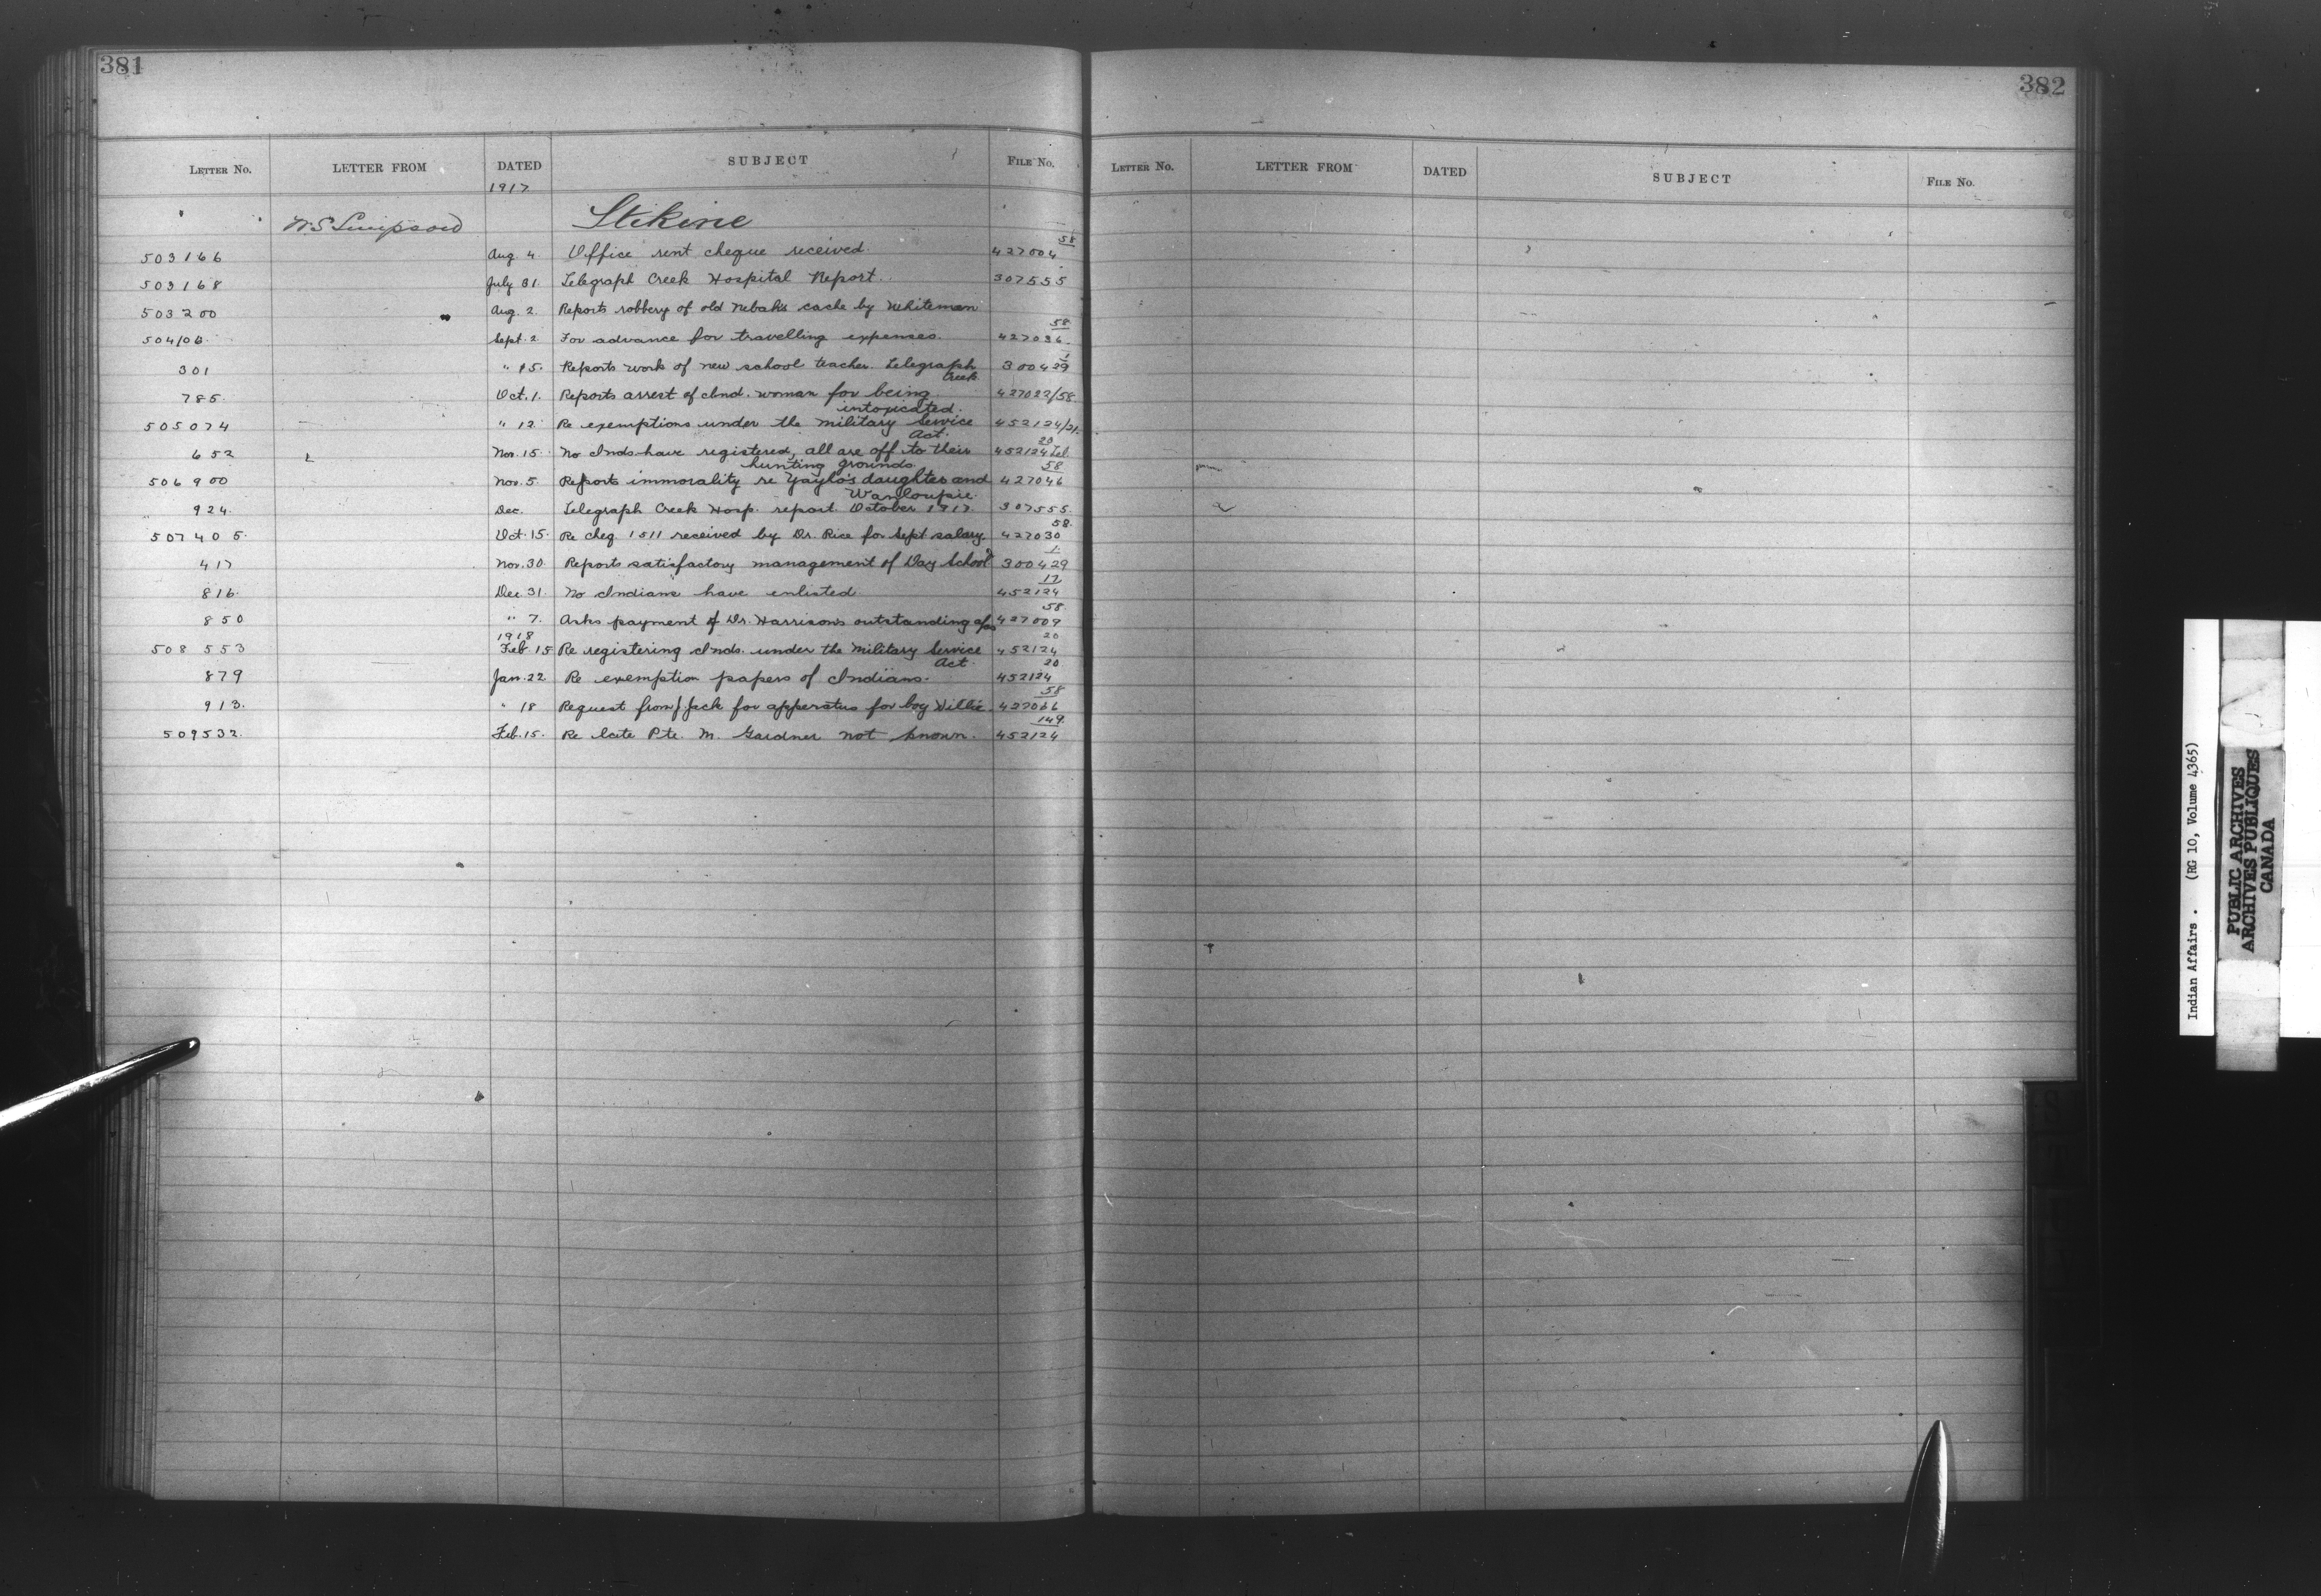 381
382
LETTER No. LETTER FROM DATED SUBJECT FILE No.
LETTER No. LETTER FROM DATED SUBJECT FILE No.
1917
W. S. Simpson Stikine
503166 Aug. 4 Office rent cheque received. 427004 58
503168 July 31. Telegraph Creek Hospital Report. 307555
503200 Aug. 2. Reports robbery of old Nebah's cache by Whiteman
504106 Sept. 2 For advance for travelling expenses. 427036 58
301 " 15. Reports work of new school teacher. Telegraph 300429 1
Creek
785. Oct. 1. Reports arrest of Ind. woman for being 427022/58
intoxicated.
505074 " 12 Re exemptions under the Military Service 452124/21.
Act.
652 Nov. 15 No Inds have registered, all are off to their 452124 Tel. 20
hunting grounds.
506900 Nov. 5. Reports immorality re daughter and 427046 58
924. Dec. Telegraph Creek Hosp. report October 1917. 307555.
507405. Oct. 15. Re cheq 1511 received by Dr. Rice for Sept salary 427030 58.
417 Nov. 30. Reports satisfactory management of Day School 300429 1
816. Dec. 31. No Indians have enlisted. 452124 17
850 " 7. Asks payment of Dr. Harrison's outstanding a/cs 427009 58.
1918
508553 Feb 15 Re registering Inds. under the Military Service 452124 20
Act.
879 Jan. 22 Re exemption papers of Indians. 452124 20
913. " 18 Request from J. Jack for apparatus for boy Willie. 427066 58
509532. Feb. 15. Re late Pte. M. Gardner not known. 452124 149
Indian Affairs. (RG 10, Volume 4365)
PUBLIC ARCHIVES
ARCHIVES PUBLIQUES
CANADA